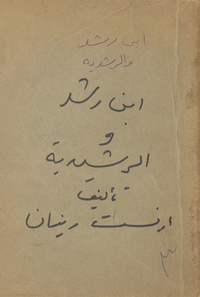 ابن رشد
والرشدية
ابن رشد
و
الرشدية
تأليف
ارنست رينان